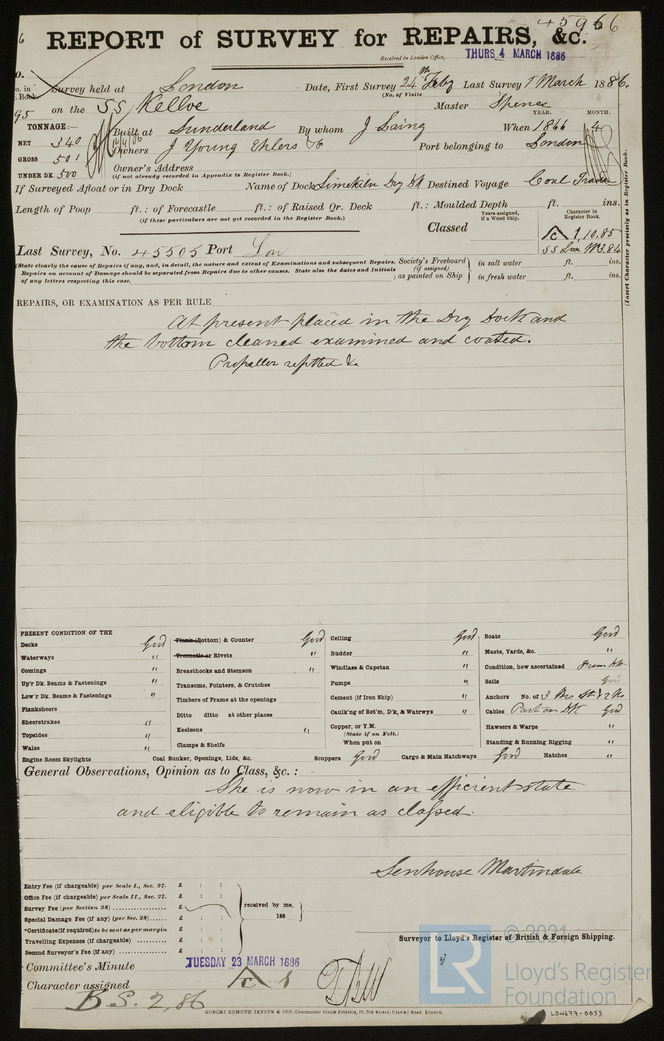 45966
REPORT of SURVEY for REPAIRS, &c.
Received in London Office, THURS 4 MARCH 1886
Survey held at London Date, First Survey 24th Feby Last Survey 1 March 1886.
(No. of Visits
95 on the SS Kelloe Master Spence
YEAR. MONTH.
TONNAGE:—
NET 340
GROSS 501
UNDER DK. 500
Built at Sunderland By whom J Laing When 1866 4
Owners J Young Ehlers & Co Port belonging to London
Owner's Address
(if not already recorded in Appendix to Register Book.)
If Surveyed Afloat or in Dry Dock Name of Dock Limekiln Dry Dk Destined Voyage Coal Trade
Length of Poop ft.: of Forecastle ft.: of Raised Qr. Deck ft.: Moulded Depth ft. ins.
(if these particulars are not yet recorded in the Register Book.)
Years assigned, if a Wood Ship.
Character in Register Book.
Classed A 1, 10.85
Last Survey, No. 45505 Port Lon
SS Lon
(State clearly the cause of Repairs if any, and, in detail, the nature and extent of Examinations and subsequent Repairs.
Repairs on account of Damage should be separated from Repairs due to other causes. State also the dates and Initials
of any letters respecting this case.
Society's Freeboard (if assigned) as painted on Ship
in salt water ft. ins.
in fresh water ft. ins.
(Insert Character precisely as in Register Book.
REPAIRS, OR EXAMINATION AS PER RULE
At present placed in the Dry Dock and
the bottom cleaned examined and coated.
Propeller refitted &c
PRESENT CONDITION OF THE
Decks Good
Waterways "
Comings "
Up'r Dk. Beams & Fastenings "
Low'r Dk. Beams & Fastenings "
Planksheers
Sheerstrakes "
Topsides "
Wales "
Engine Room Skylights
Plank (Bottom) & Counter Good
Treenails or Rivets "
Breasthooks and Stemson "
Transoms, Pointers, & Crutches
Timbers of Frame at the openings
Ditto ditto at other places
Keelsons "
Clamps & Shelfs
Coal Bunker, Openings, Lids, &c.
Ceiling Good
Rudder "
Windlass & Capstan "
Pumps "
Cement (if Iron Ship) "
Caulk'ng of Bot'm, D'k, & Watrwys "
Copper, or Y.M.
(State if on Felt.)
When put on
Scuppers Good
Boats Good
Masts, Yards, &c. "
Condition, how ascertained From Dk
Sails Good
Anchors No. of
Cables Part on Dk Good
Hawsers & Warps "
Standing & Running Rigging "
Cargo & Main Hatchways Good Hatches "
General Observations, Opinion as to Class, &c. :
She is now in an efficient state
and eligible to remain as classed.
Senhouse Martindale
Entry Fee (if chargeable) per Scale I., Sec. 27. £ : :
Office Fee (if chargeable) per Scale II., Sec. 27. £ : :
Survey Fee (per Section 28) £ : :
Special Damage Fee (if any) (per Sec. 28) £ : :
*Certificate (if required) to be sent as per margin £ : :
Travelling Expenses (if chargeable) £ : :
Second Surveyor's Fee (if any) £ : :
received by me,
188
Surveyor to Lloyd's Register of British & Foreign Shipping.
Committee's Minute TUESDAY 23 MARCH 1886
Character assigned A 1
B.S. 2,86
© 2021
LR
Lloyd's Register
Foundation
LON677-0053